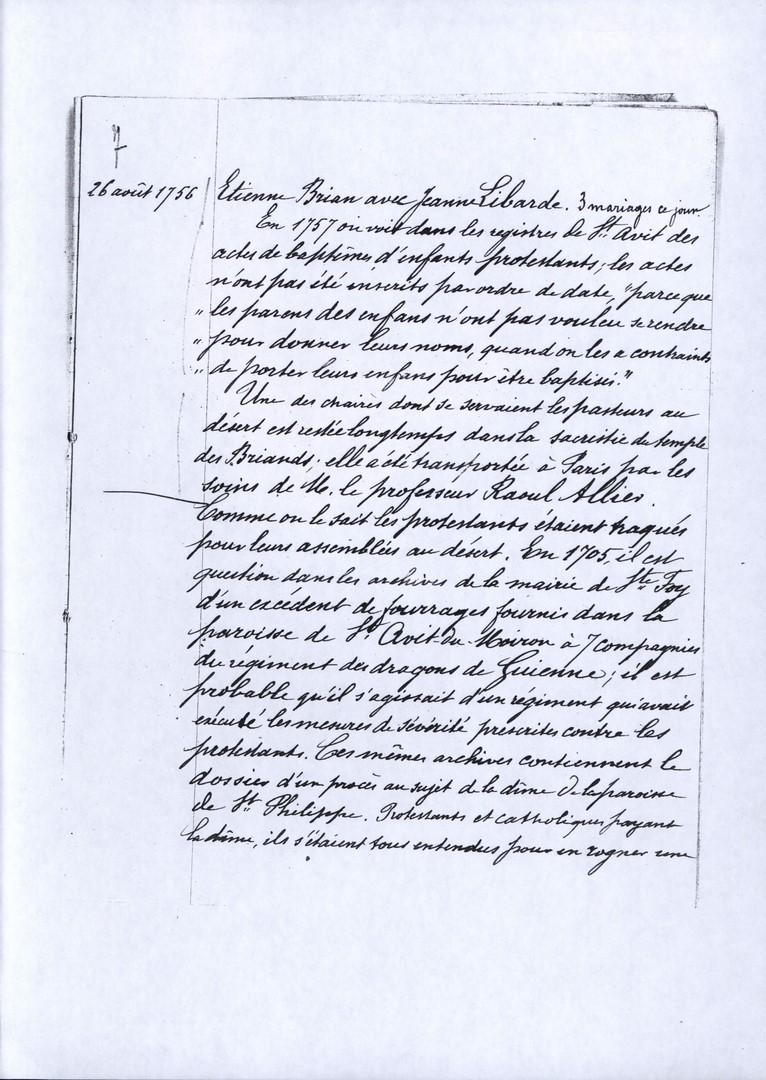 7
26 août 1756 Etienne Brian avec Jeanne Libarde. 3 mariages ce jour
En 1757 on voit dans les registres de St. Avit des
actes de baptêmes d'enfants protestants; les actes
n'ont pas été inscrits par ordre de date, "parceque
" les parens des enfans n'ont pas voulu se rendre
" pour donner leurs noms, quand on les a contraints
" de porter leurs enfans pour être baptisés."
Une des chaires dont se servaient les pasteurs au
désert est restée longtemps dans la sacristie du temple
des Briands; elle a été transportée à Paris par les
soins de M. le professeur Raoul Allier.
Comme on le sait les protestants étaient traqués
pour leurs assemblées au désert. En 1705, il est
question dans les archives de la mairie de Ste Foy
d'un excédent de fourrages fournis dans la
paroisse de St Avit-du-Moiron à 7 compagnies
du régiment des dragons de Guienne; il est
probable qu'il s'agissait d'un régiment qui avait
exécuté les mesures de sévérité prescrites contre les
protestants. Ces mêmes archives contiennent le
dossier d'un procès au sujet de la dîme de la paroisse
de St. Philippe. Protestants et catholiques payant
la dîme, ils s'étaient tous entendus pour en rogner une